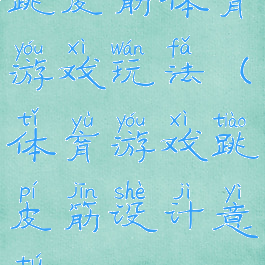 跳皮筋体育
yóu xì wán fǎ
游戏玩法（
tǐ yù yóu xì tiào
体育游戏跳
pí jīn shè jì yì
皮筋设计意